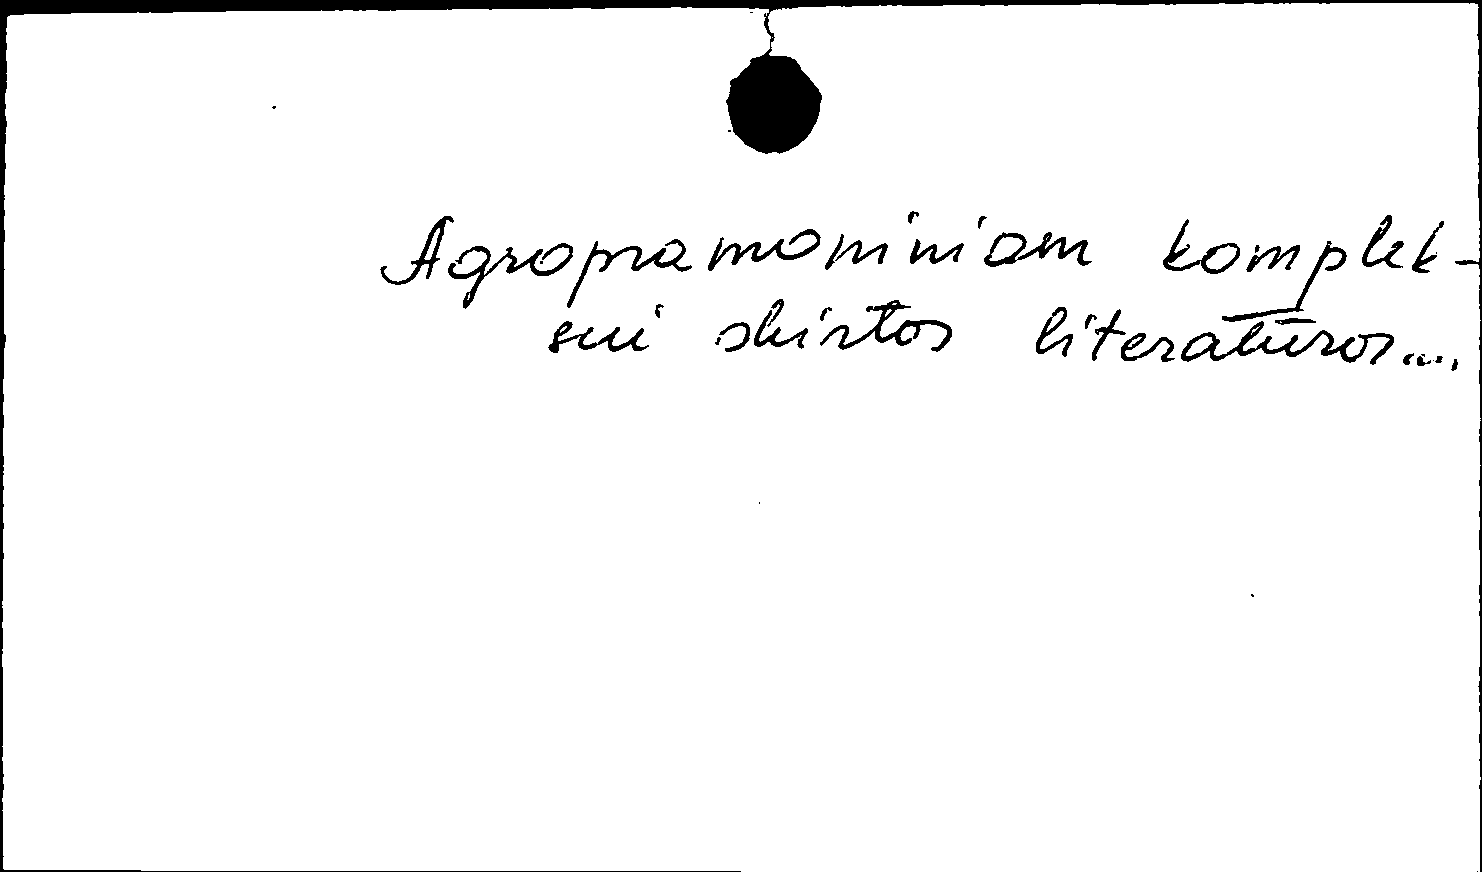 Agropramoniniam komplek-
sui skirtos literatūros...